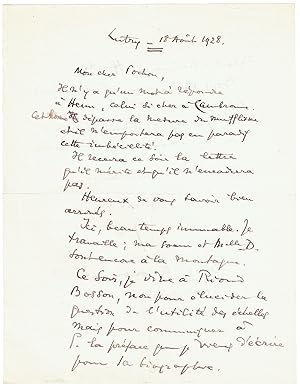 Lutry — 18 Août 1928.
Mon cher Pochon,
Il n'y a qu'un mot à répondre
à Henn, celui si cher à Cambronne.
Cet homme dépasse la mesure du muflisme
et il n'emportera pas en paradis
cette imbécilité.
Il recevra ce soir la lettre
qu'il mérite et qu'il n'encadrera
pas.
Heureux de vous savoir bien
arrivés.
Ici, beau temps immuable. Je
travaille ; ma soeur et Melle D.
sont encore à la montagne.
Ce soir, je dîne à Riond
Bosson, non pour élucider la
question de l'utilité des échelles
mais pour communiquer à
P. la préface que je viens d'écrire
pour la biographie.